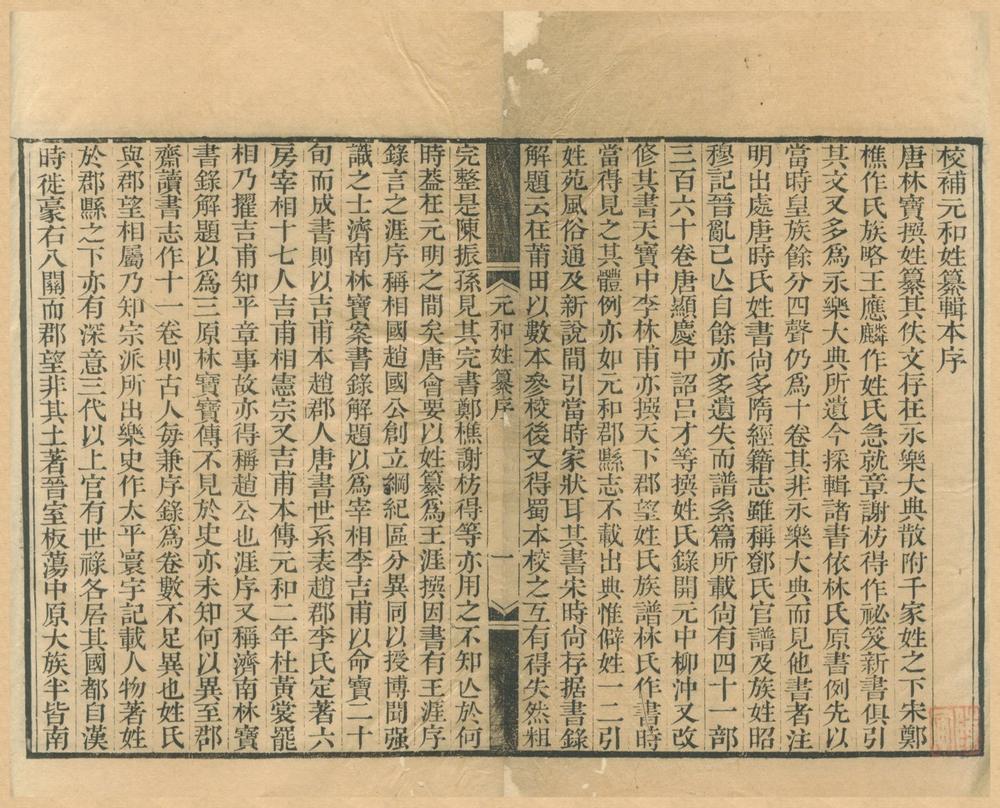 校補元和姓纂輯本序
唐林寶撰姓纂其佚文存在永樂大典散附千家姓之下宋鄭
樵作氏族略王應麟作姓氏急就章謝枋得作祕笈新書俱引
其文又多爲永樂大典所遺今採輯諸書依林氏原書例先以
當時皇族餘分四聲仍爲十卷其非永樂大典而見他書者注
明出處唐時氏姓書尙多隋經籍志雖稱鄧氏官譜及族姓昭
穆記晉亂已亾自餘亦多遺失而譜系篇所載尙有四十一部
三百六十卷唐顯慶中詔呂才等撰姓氏錄開元中柳沖又改
修其書天寶中李林甫亦撰天下郡望姓氏族譜林氏作書時
當得見之其體例亦如元和郡縣志不載出典惟僻姓一二引
姓苑風俗通及新說間引當時家狀耳其書宋時尙存据書錄
解題云在莆田以數本參校後又得蜀本校之互有得失然粗
元和姓纂序
一
完整是陳振孫見其完書鄭樵謝枋得等亦用之不知亾於何
時葢在元明之間矣唐會要以姓纂爲王涯撰因書有王涯序
錄言之涯序稱相國趙國公創立綱紀區分異同以授博聞强
識之士濟南林寶案書錄解題以爲宰相李吉甫以命寶二十
旬而成書則以吉甫本趙郡人唐書世系表趙郡李氏定著六
房宰相十七人吉甫相憲宗又吉甫本傳元和二年杜黃裳罷
相乃擢吉甫知平章事故亦得稱趙公也涯序又稱濟南林寶
書錄解題以爲三原林寶寶傳不見於史亦未知何以異至郡
齋讀書志作十一卷則古人每兼序錄爲卷數不足異也姓氏
與郡望相屬乃知宗派所出樂史作太平寰宇記載人物著姓
於郡縣之下亦有深意三代以上官有世祿各居其國都自漢
時徙豪右入關而郡望非其土著晉室板蕩中原大族半皆南